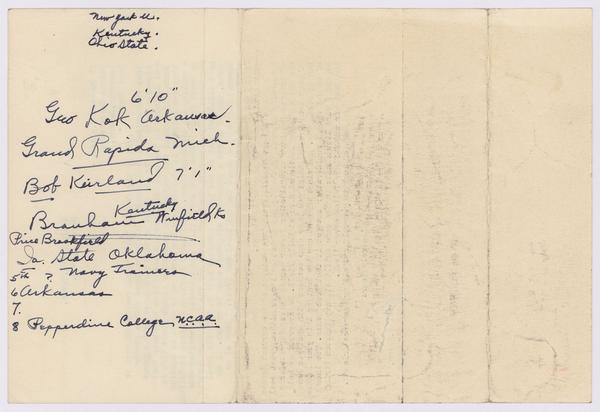 New York U.
Kentucky.
Ohio State.
6'10"
Geo Kok Arkansas.
Grand Rapids Mich.
Bob Kurland 7'1"
Kentucky
Branham Winfield Ks
Price Brookfield
Ia. State Oklahoma
5th ? Navy Trainers
6 Arkansas
7.
8 Pepperdine College N.C.A.A.